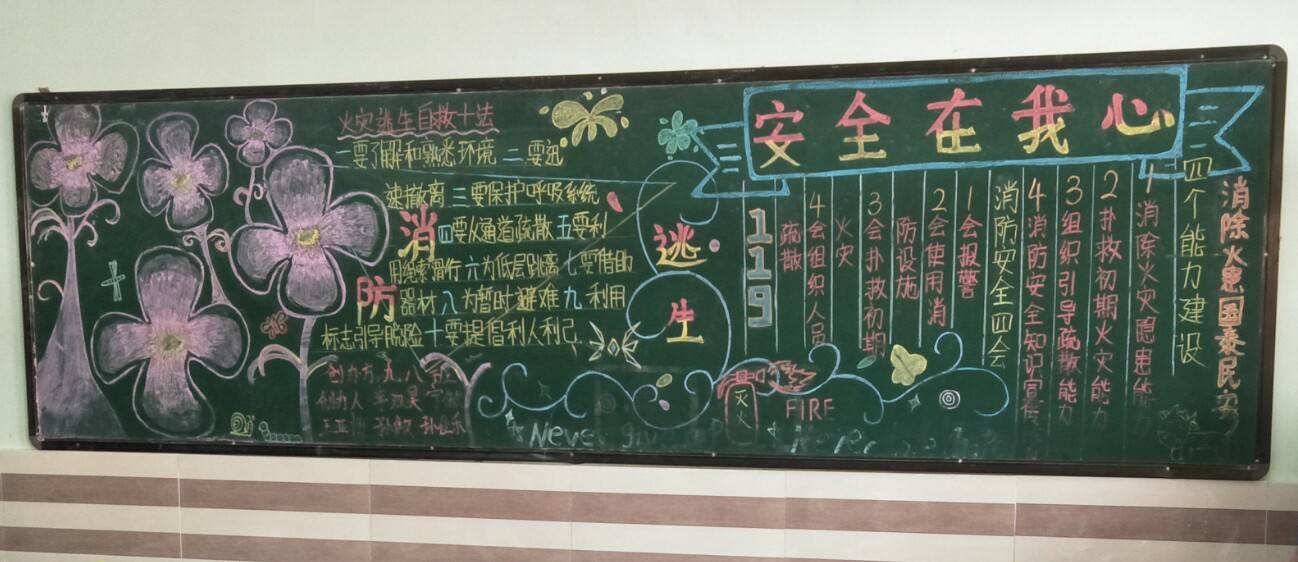 安全在我心
火灾逃生自救十法
一要了解和熟悉环境 二要迅
速撤离 三要保护呼吸系统
四要从通道疏散 五要利
用绳索滑行 六为低层跳离 七要借助
器材 八为暂时避难 九利用
标志引导脱险 十要提倡利人利己
消
防
逃
生
创办方 九.八
创办人
消除火患国泰民安
四个能力建设
1 消除火灾隐患能力
2 扑救初期火灾能力
3 组织引导疏散能力
4 消防安全知识宣传
消防安全四会
1 会报警
2 会使用消
防设施
3 会扑救初期
火灾
4 会组织人员
疏散
119
灭火
FIRE
Never give up